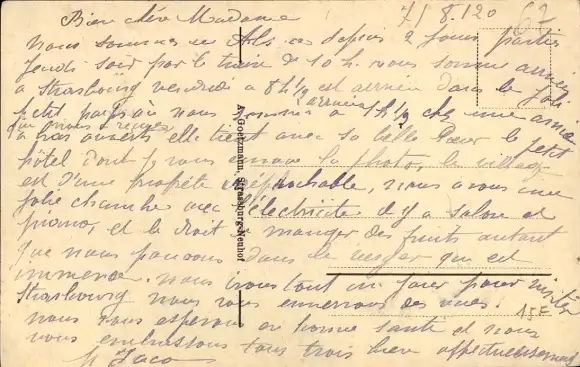 Bien chère Madame
7/8.120
67
nous sommes en depuis 2 jours parties
jeudi soir par le train de 10 h. nous sommes arrivées
a Strasbourg vendredi a 8h ½ et arrivée dans le joli
petit pays où nous sommes arrivées a 1h ½ chez une amie
qui nous a reçues
a bras ouverts elle tient avec sa belle Sœur le petit
hôtel dont je vous envoie la photo, le village
est d'une propreté irréprochable, nous avons une
jolie chambre avec électricité il y a salon et
piano, et le droit de manger des fruits autant
que nous pouvons dans le verger qui est
immense. nous irons tout un jour pour visiter
Strasbourg nous vous enverrons des vues.
nous vous espérons en bonne santé et nous
vous embrassons tous trois bien affectueusement
M Jaco
A. Goetzmann, Strasbourg-Neuhof
15E